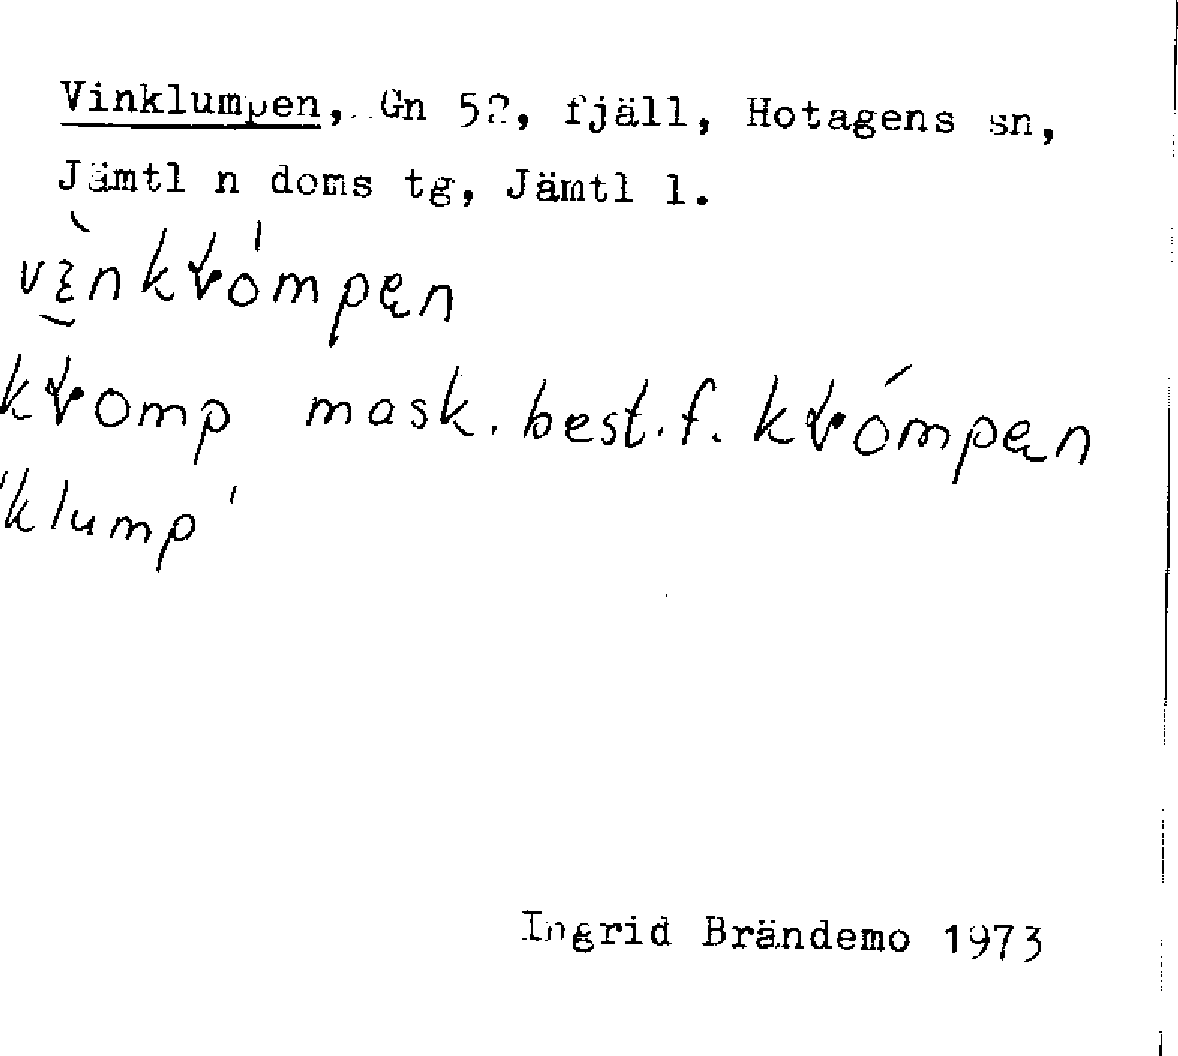 Vinklumpen, Gn 52, fjäll, Hotagens sn,
Jämtl n doms tg, Jämtl l.
mask. best. f.
'klump'
Ingrid Brändemo 1973